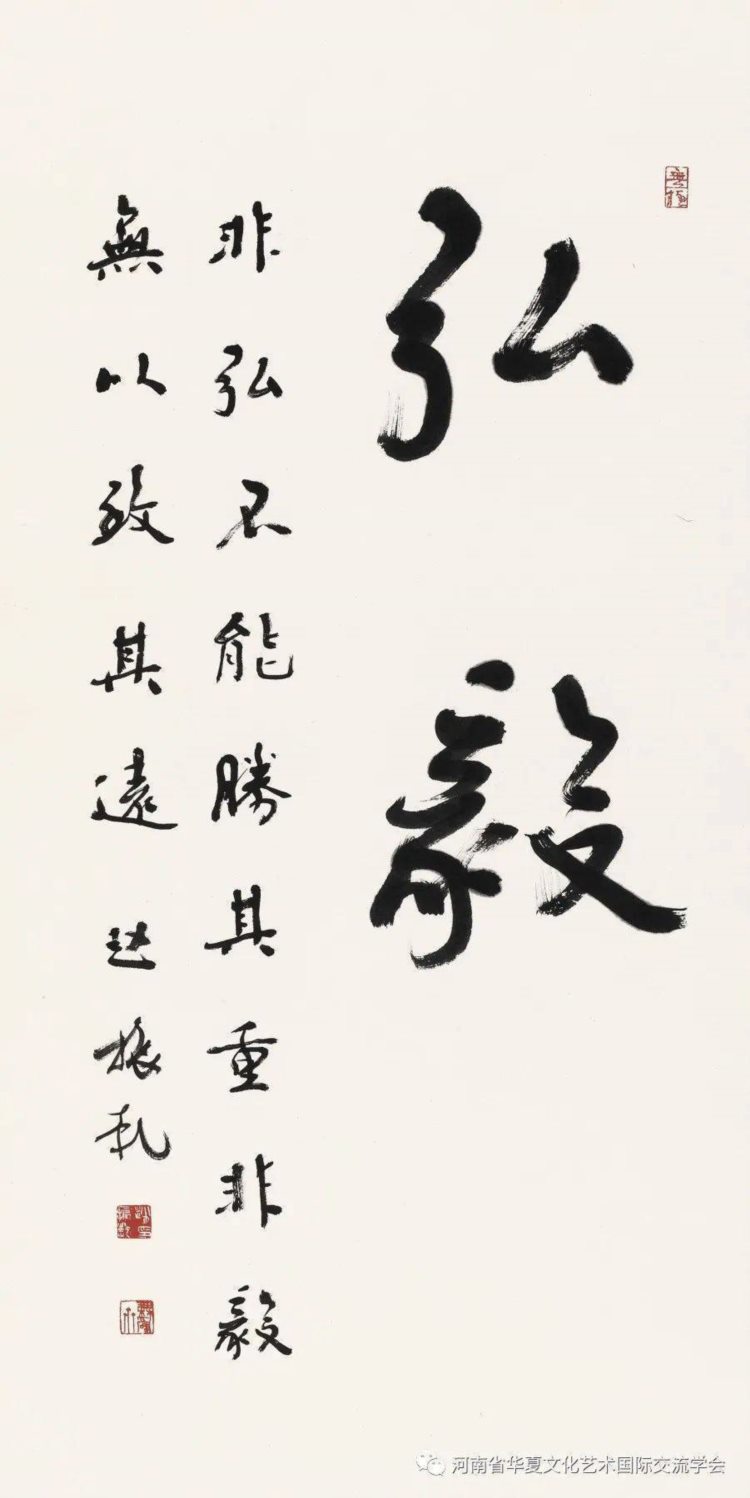 弘毅
非弘不能勝其重非毅
無以致其遠 赵振乾
河南省华夏文化艺术国际交流学会